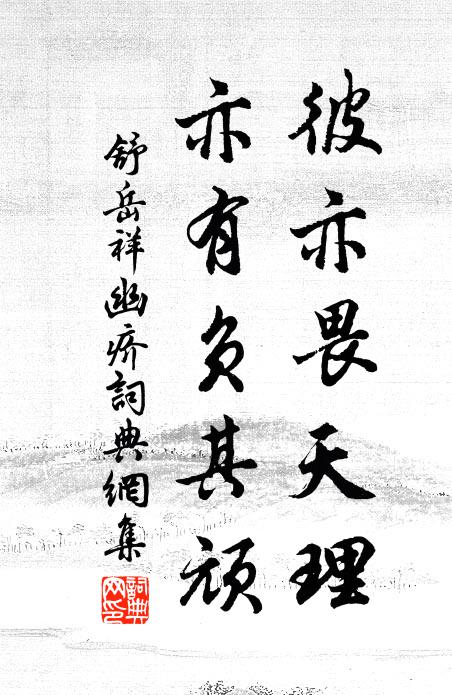 彼亦畏天理
亦有負其頑
舒岳祥幽疥詞典網集
詞典网印